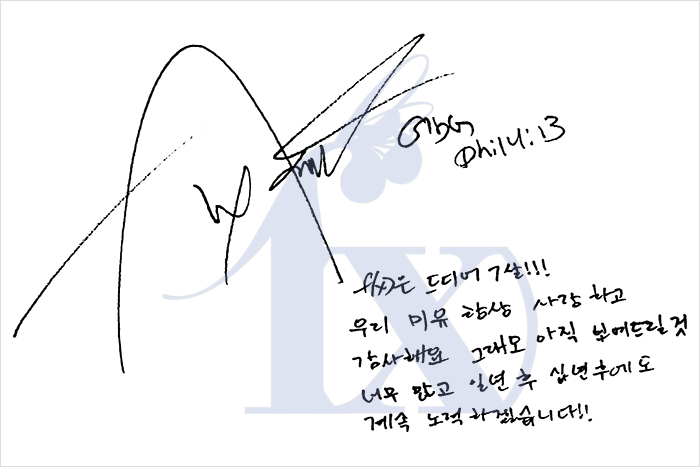 GbG
Phil 4:13
f(x)은 드디어 7살!!!
우리 미유 항상 사랑하고
감사해요 그대로 아직 보여드릴 것
너무 많고 일년 후 십년 후에도
계속 노력하겠습니다!!
1x